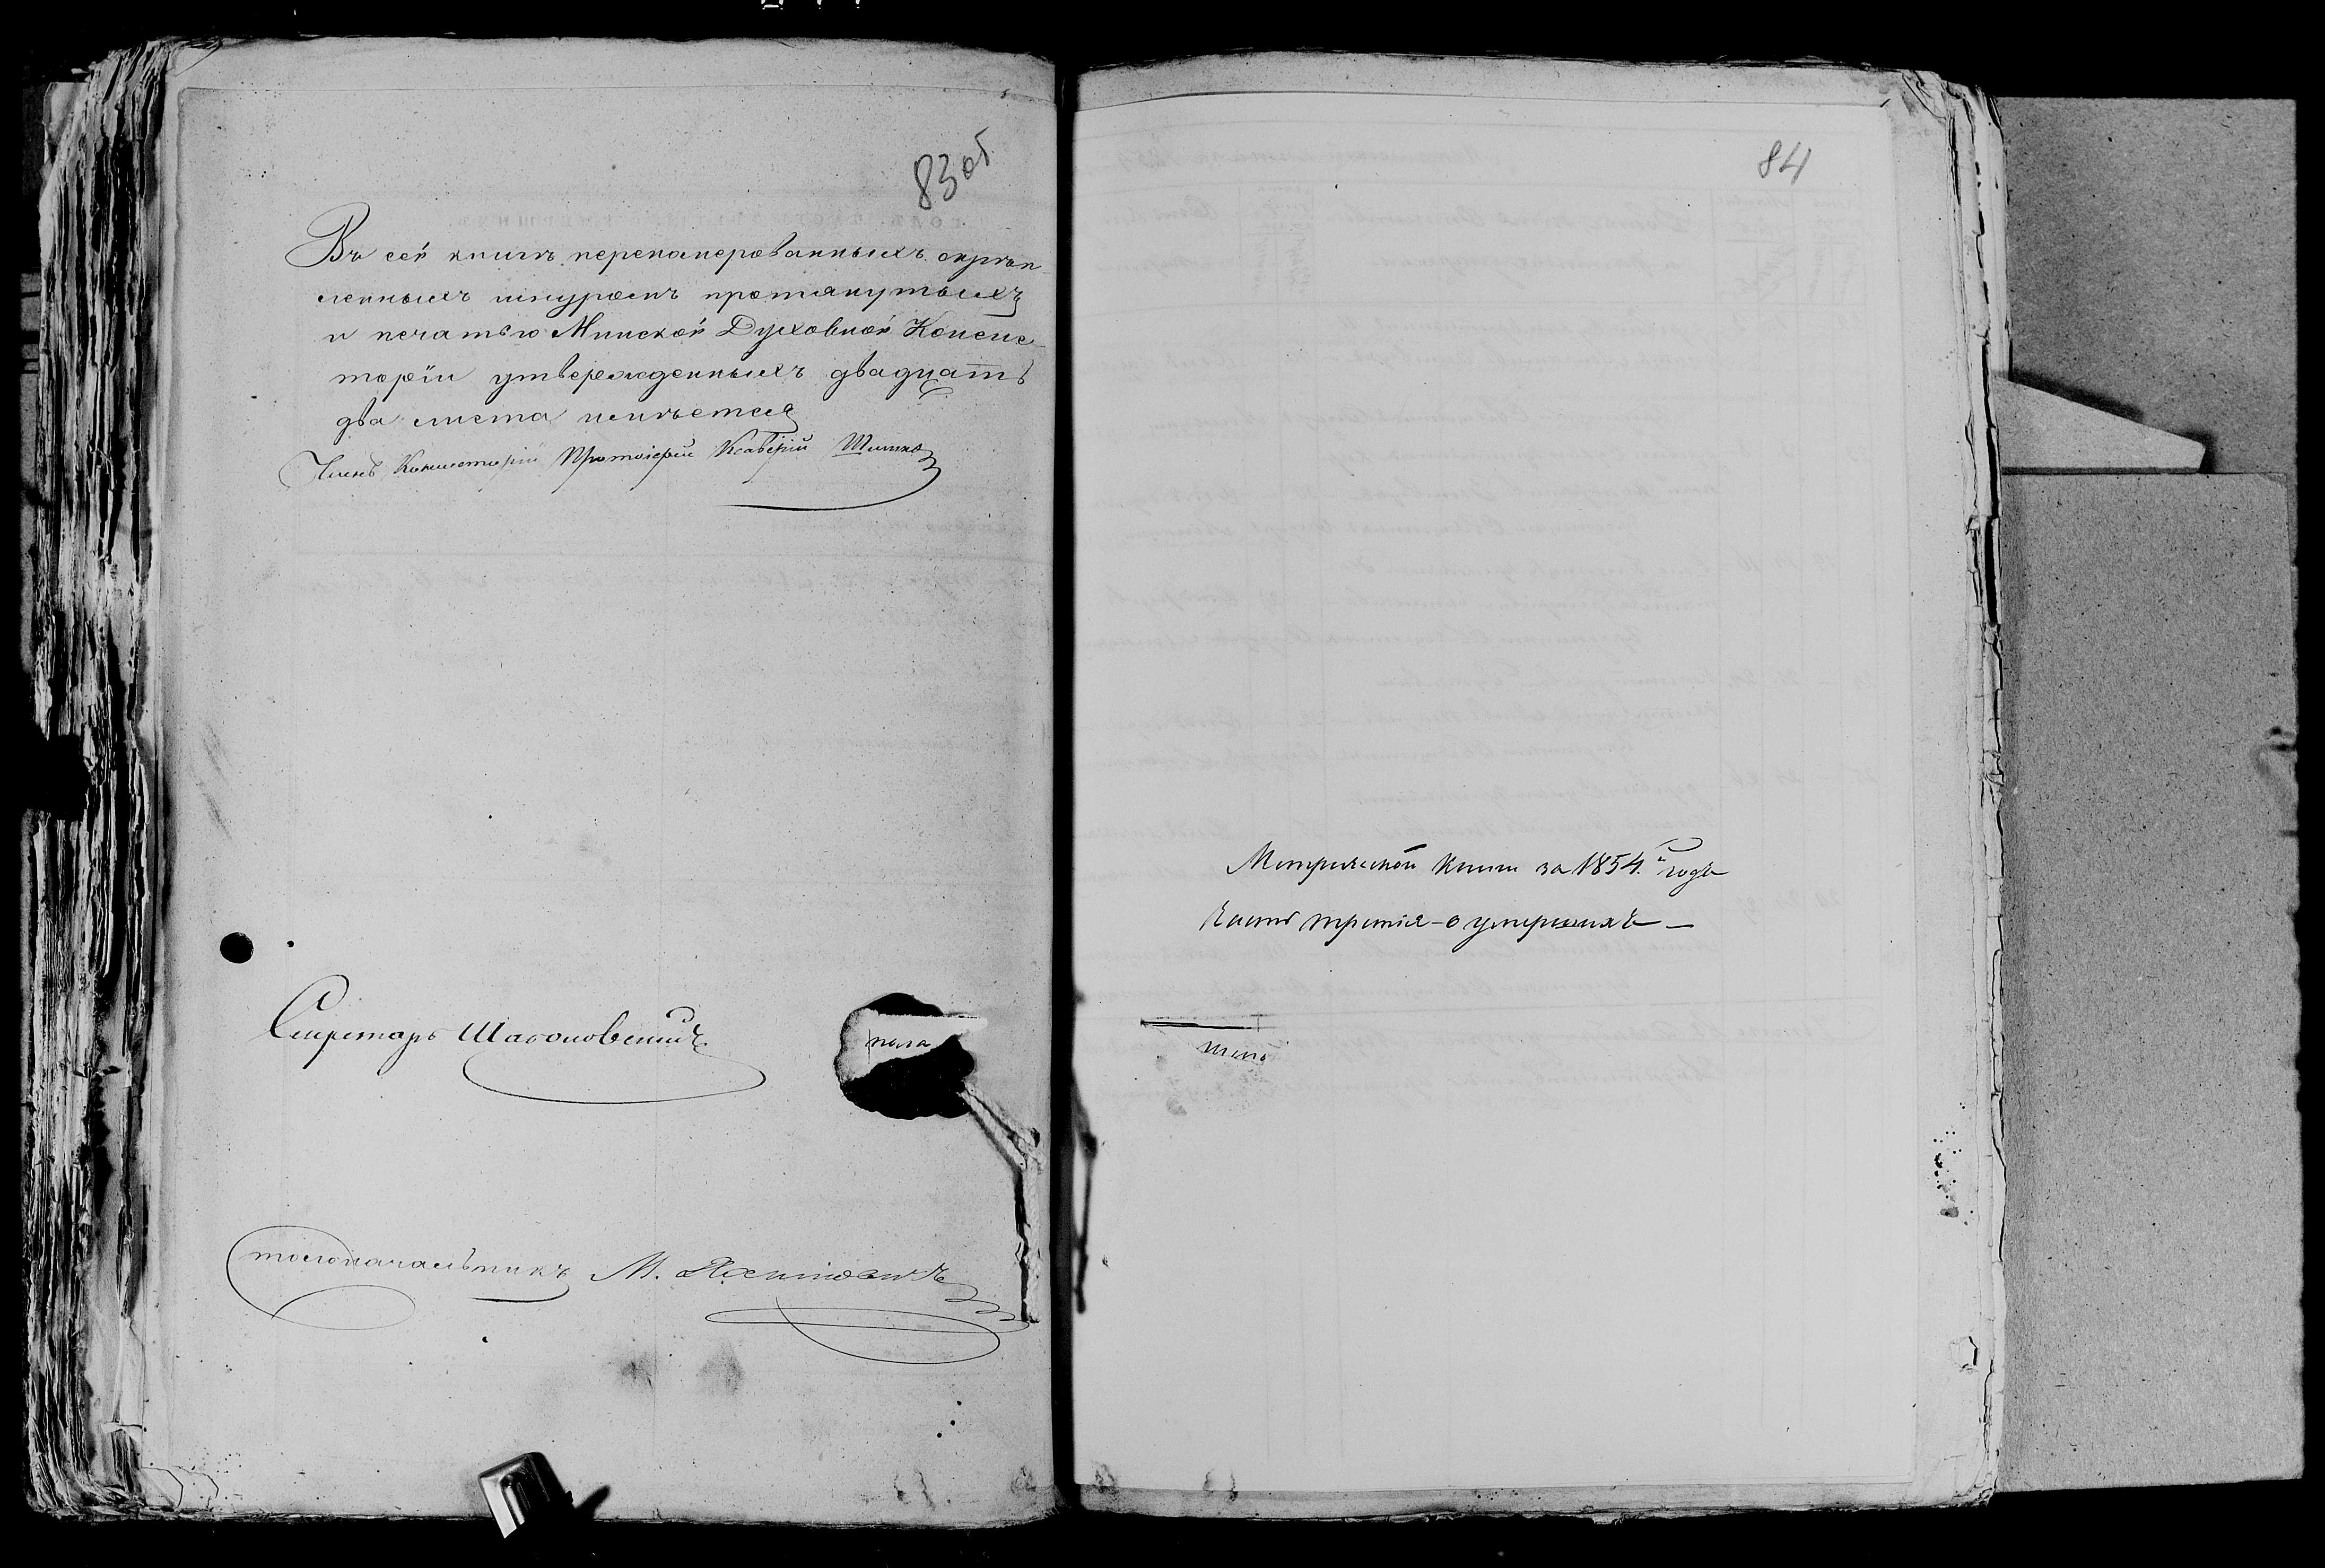 83 об
Въ сей книгѣ перенамерованныхъ скрѣп-
ленныхъ шнуромъ протянутыхъ
и печатью Минской Духовной Консис-
торіи утвержденныхъ двадцать
два листа имѣется
Членъ Консисторіи Протоіерей Ксаверій
Секретарь
пола
столоначальникъ М.
84
Метрической книги за 1854.й годъ
Часть третія – о умершихъ –